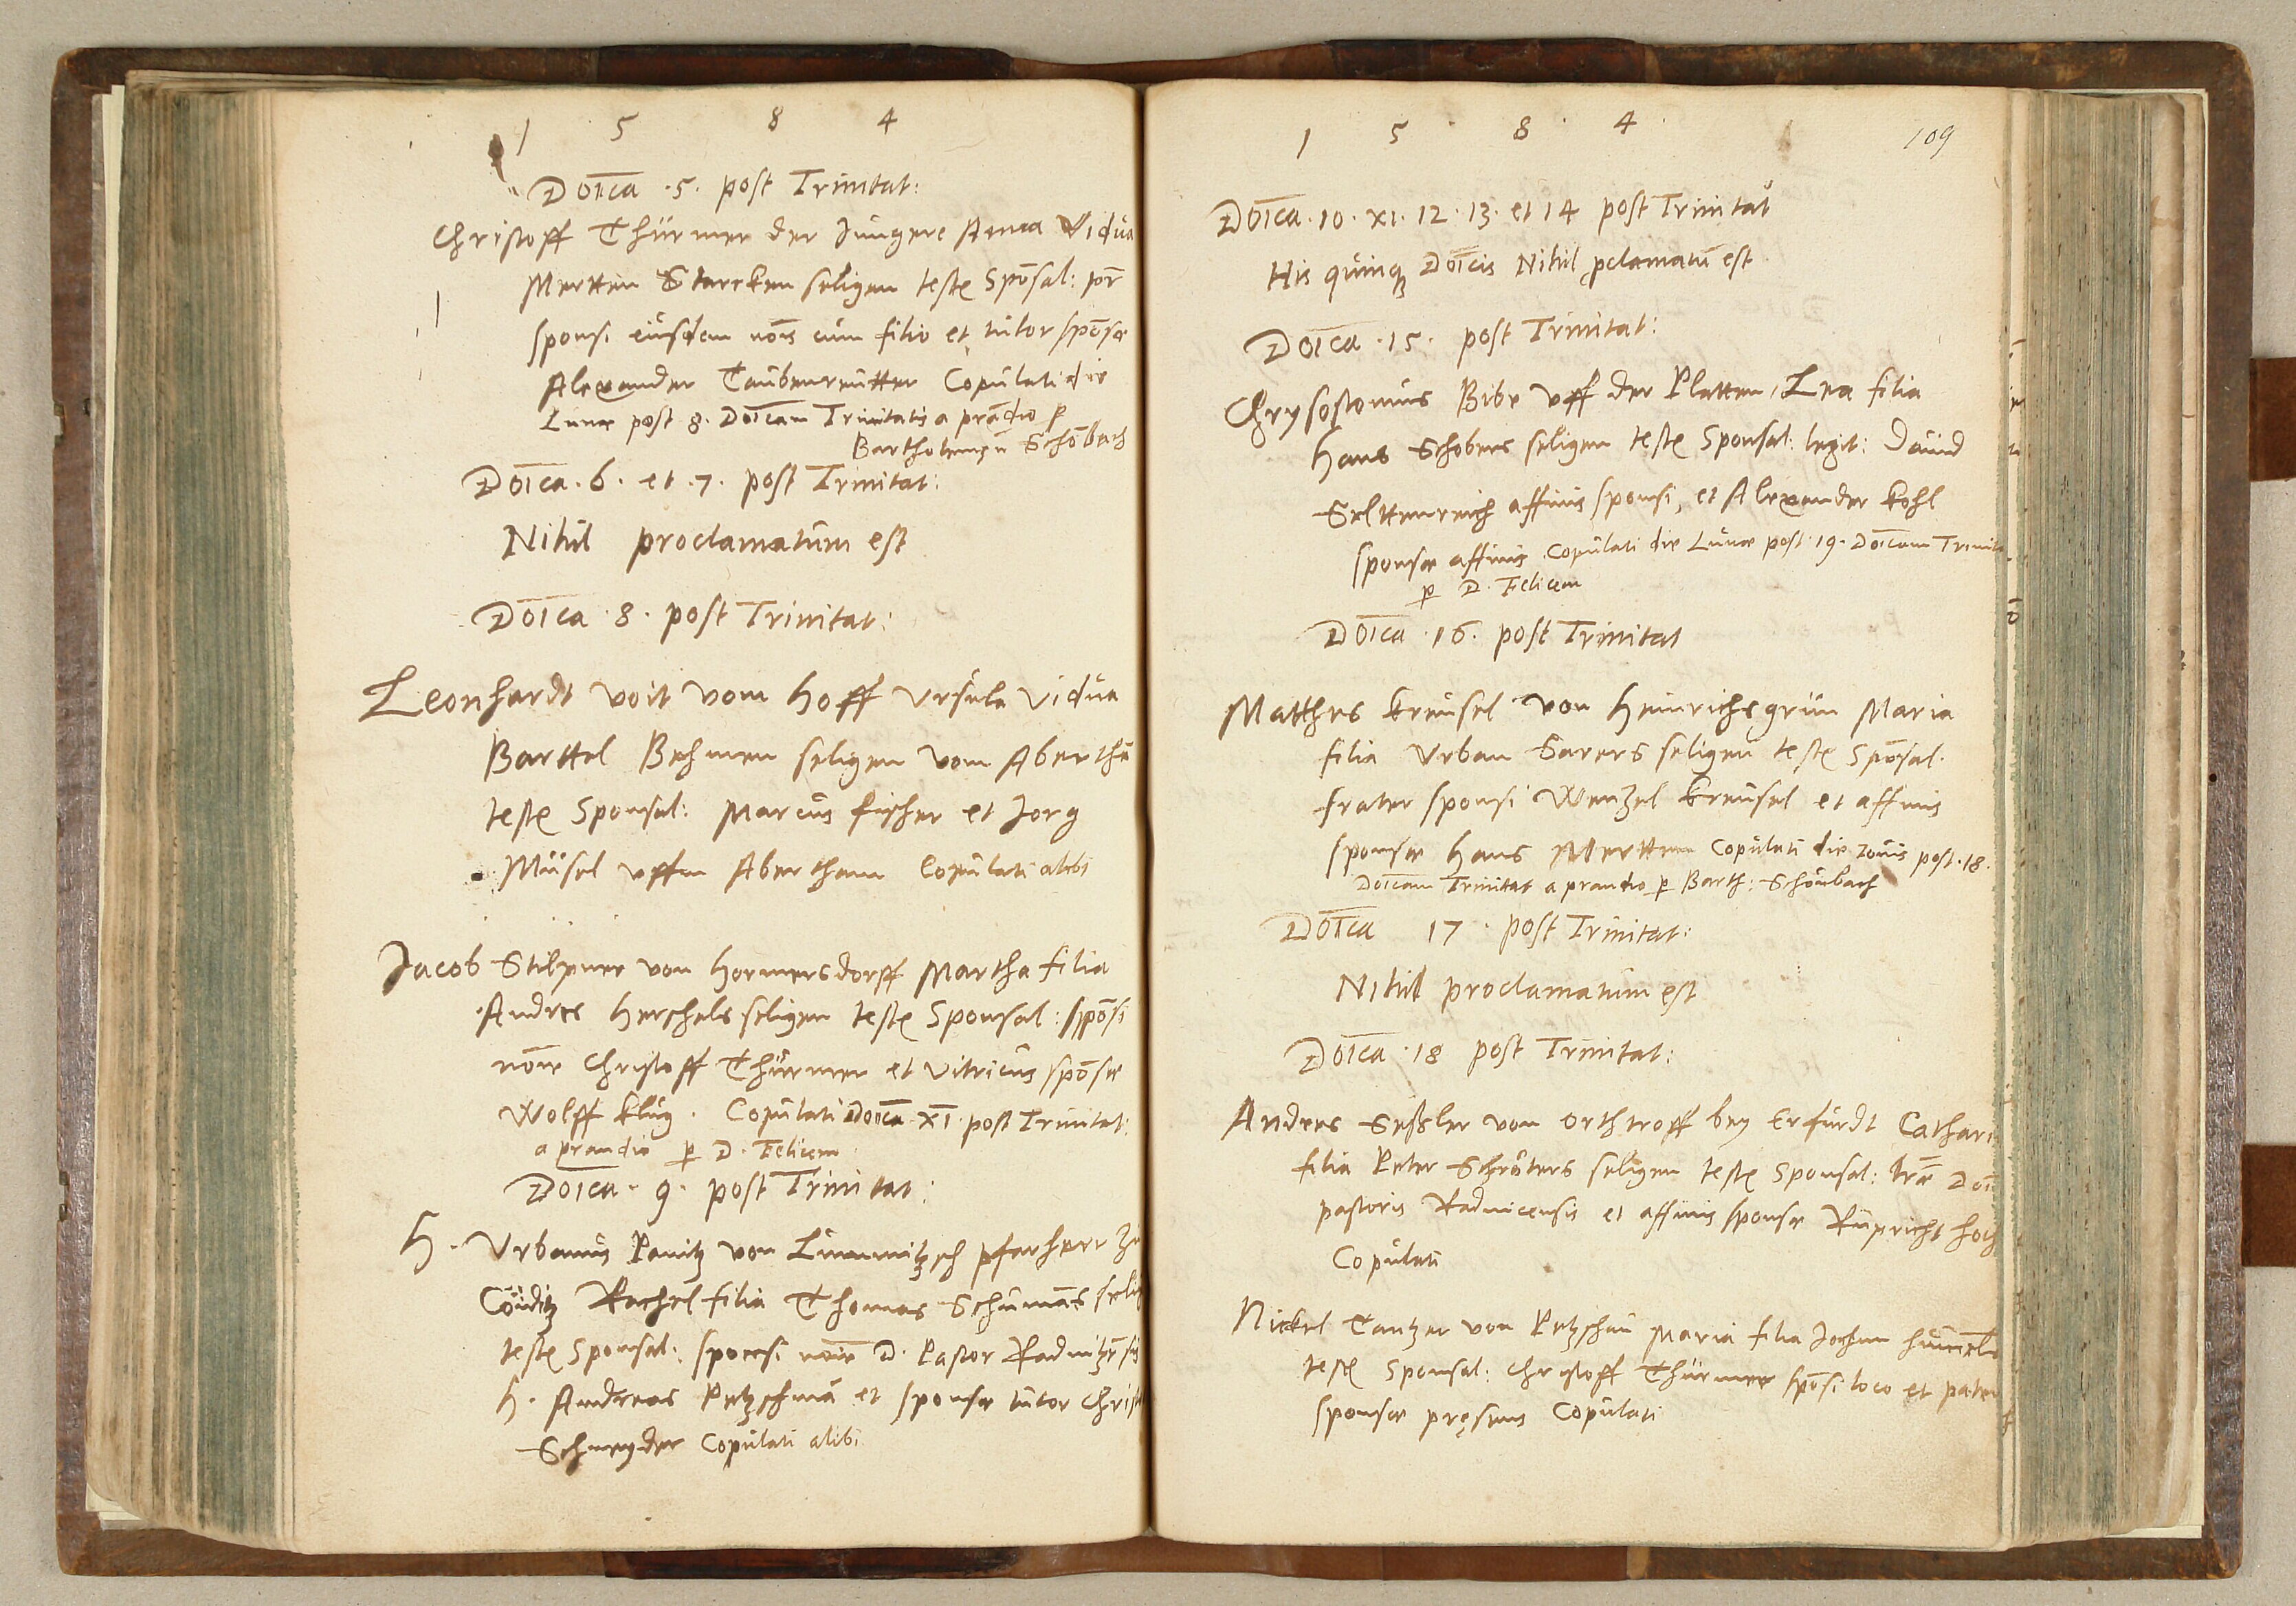 1 5 8 4
Doīca · 5 · post Trinitat:
Christoff Thürmer der Jungere Anna Vidua
Mertten Starcken seligen testes Spōsal:
sponsi eiusdem nōis cum filio et tutor spōsæ
Alexander Taubenreutter Copulati die
Lunæ post 8. Doīcam Trinitatis a prādio p
Bartholemeū Schōbach
Doīca · 6 · et · 7 · post Trinitat:
Nihil proclamatum est
Doīca · 8 · post Trinitat:
Leonhardt Voit vom Hoff Ursula Vidua
Barttel Behmen seligen vom Aberthā
testes Sponsal: Marcus Fischer et Jorg
Müsel uffm Abertham Copulati alibi
Jacob Stilpner von Hormersdorff Martha filia
Andres Herschels seligen testes Sponsal: spōsi
nōie Christoff Thürmer et Vitricus spōsæ
Wolff Klug · Copulati Doīca XI post Trinitat:
a prandio p D. Felicem
Doīca · 9 · post Trinitat:
H. Urbanus Panitz von Lummitzsch pfarherr zu
Cōuditz Rachel filia Thomas Schumās selig
testes Sponsal: sponsi nōie D. Pastor
H. Andreas Petzschmā et sponsæ tutor Christ
Schneyder Copulati alibi
1 5 · 8 · 4 ·
109
Doīca · 10 · XI · 12 · 13 · et 14 post Trinitat
His quinq Doīcis Nihil pclamatū est
Doīca · 15 · post Trinitat:
Chrysostomus Bibe uff der Platten, Lea filia
Hans Schobers seligen testes Sponsal: legit: Dauid
Seltenreich affinis sponsi, et Alexander Kohl
sponsæ affinis Copulati die Lunæ post 19. Doīcam Trinit
p D. Felicem
Doīca · 16 · post Trinitat
Matthes Kreusel von Heinrichsgrün Maria
filia Urban Sarers seligen testes Spōsal.
frater sponsi Wenzel Kreusel et affinis
sponsæ Hans Mertten Copulati die Iouis post · 18 ·
Doīcam Trinitat a prandio p Barth: Schönbach
Doīca 17 · post Trinitat:
Nihil proclamatum est
Doīca · 18 post Trinitat:
Andres Seßler von Orthtroff bey Erfurdt Cathari
filia Peter Schröters seligen testes Sponsal: lræ Doī
pastoris Radnicensis et affinis sponsæ Rupricht Hoch
Copulati
Nickel Tantzer von Petzschau Maria filia Jochim
testes Sponsal: Christoff Thürmer spōsi loco et pater
sponsæ pręsens Copulati